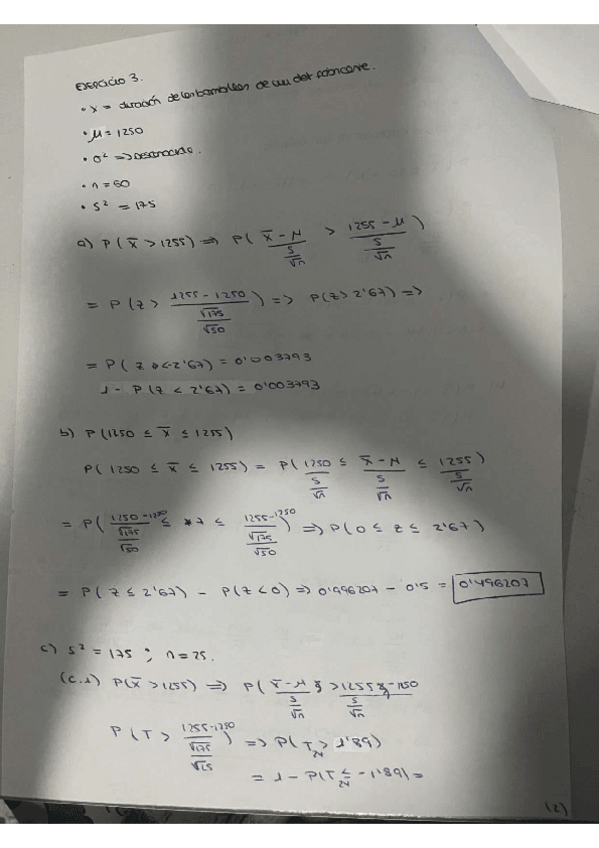 EJERCICIO 3.
• X = duración de las bombillas de un det fabricante.
• μ = 1250
• σ² => Desconocida.
• n = 50
• s² = 175
a) P( X̄ > 1255) => P( (X̄ - μ)/(s/√n) > (1255 - μ)/(s/√n) )
= P( Z > (1255 - 1250)/(√175/√50) ) => P(Z > 2'67) =>
= P( Z < -2'67) = 0'003793
1 - P(Z < 2'67) = 0'003793
b) P(1250 ≤ X̄ ≤ 1255)
P( 1250 ≤ X̄ ≤ 1255) = P( 1250/(s/√n) ≤ (X̄ - μ)/(s/√n) ≤ 1255/(s/√n) )
= P( (1250 - 1250)/(√175/√50) ≤ Z ≤ (1255 - 1250)/(√175/√50) ) => P( 0 ≤ Z ≤ 2'67)
= P( Z ≤ 2'67) - P(Z < 0) => 0'996207 - 0'5 = 0'496207
c) s² = 175 ; n = 25.
(c.1) P(X̄ > 1255) => P( (X̄ - μ)/(s/√n) > (1255 - 1150)/(s/√n)
P( T > (1255 - 1250)/(√175/√25) ) => P(T₂₄ > 1'89)
= 1 - P(T₂₄ ≤ -1'89) =
(2)